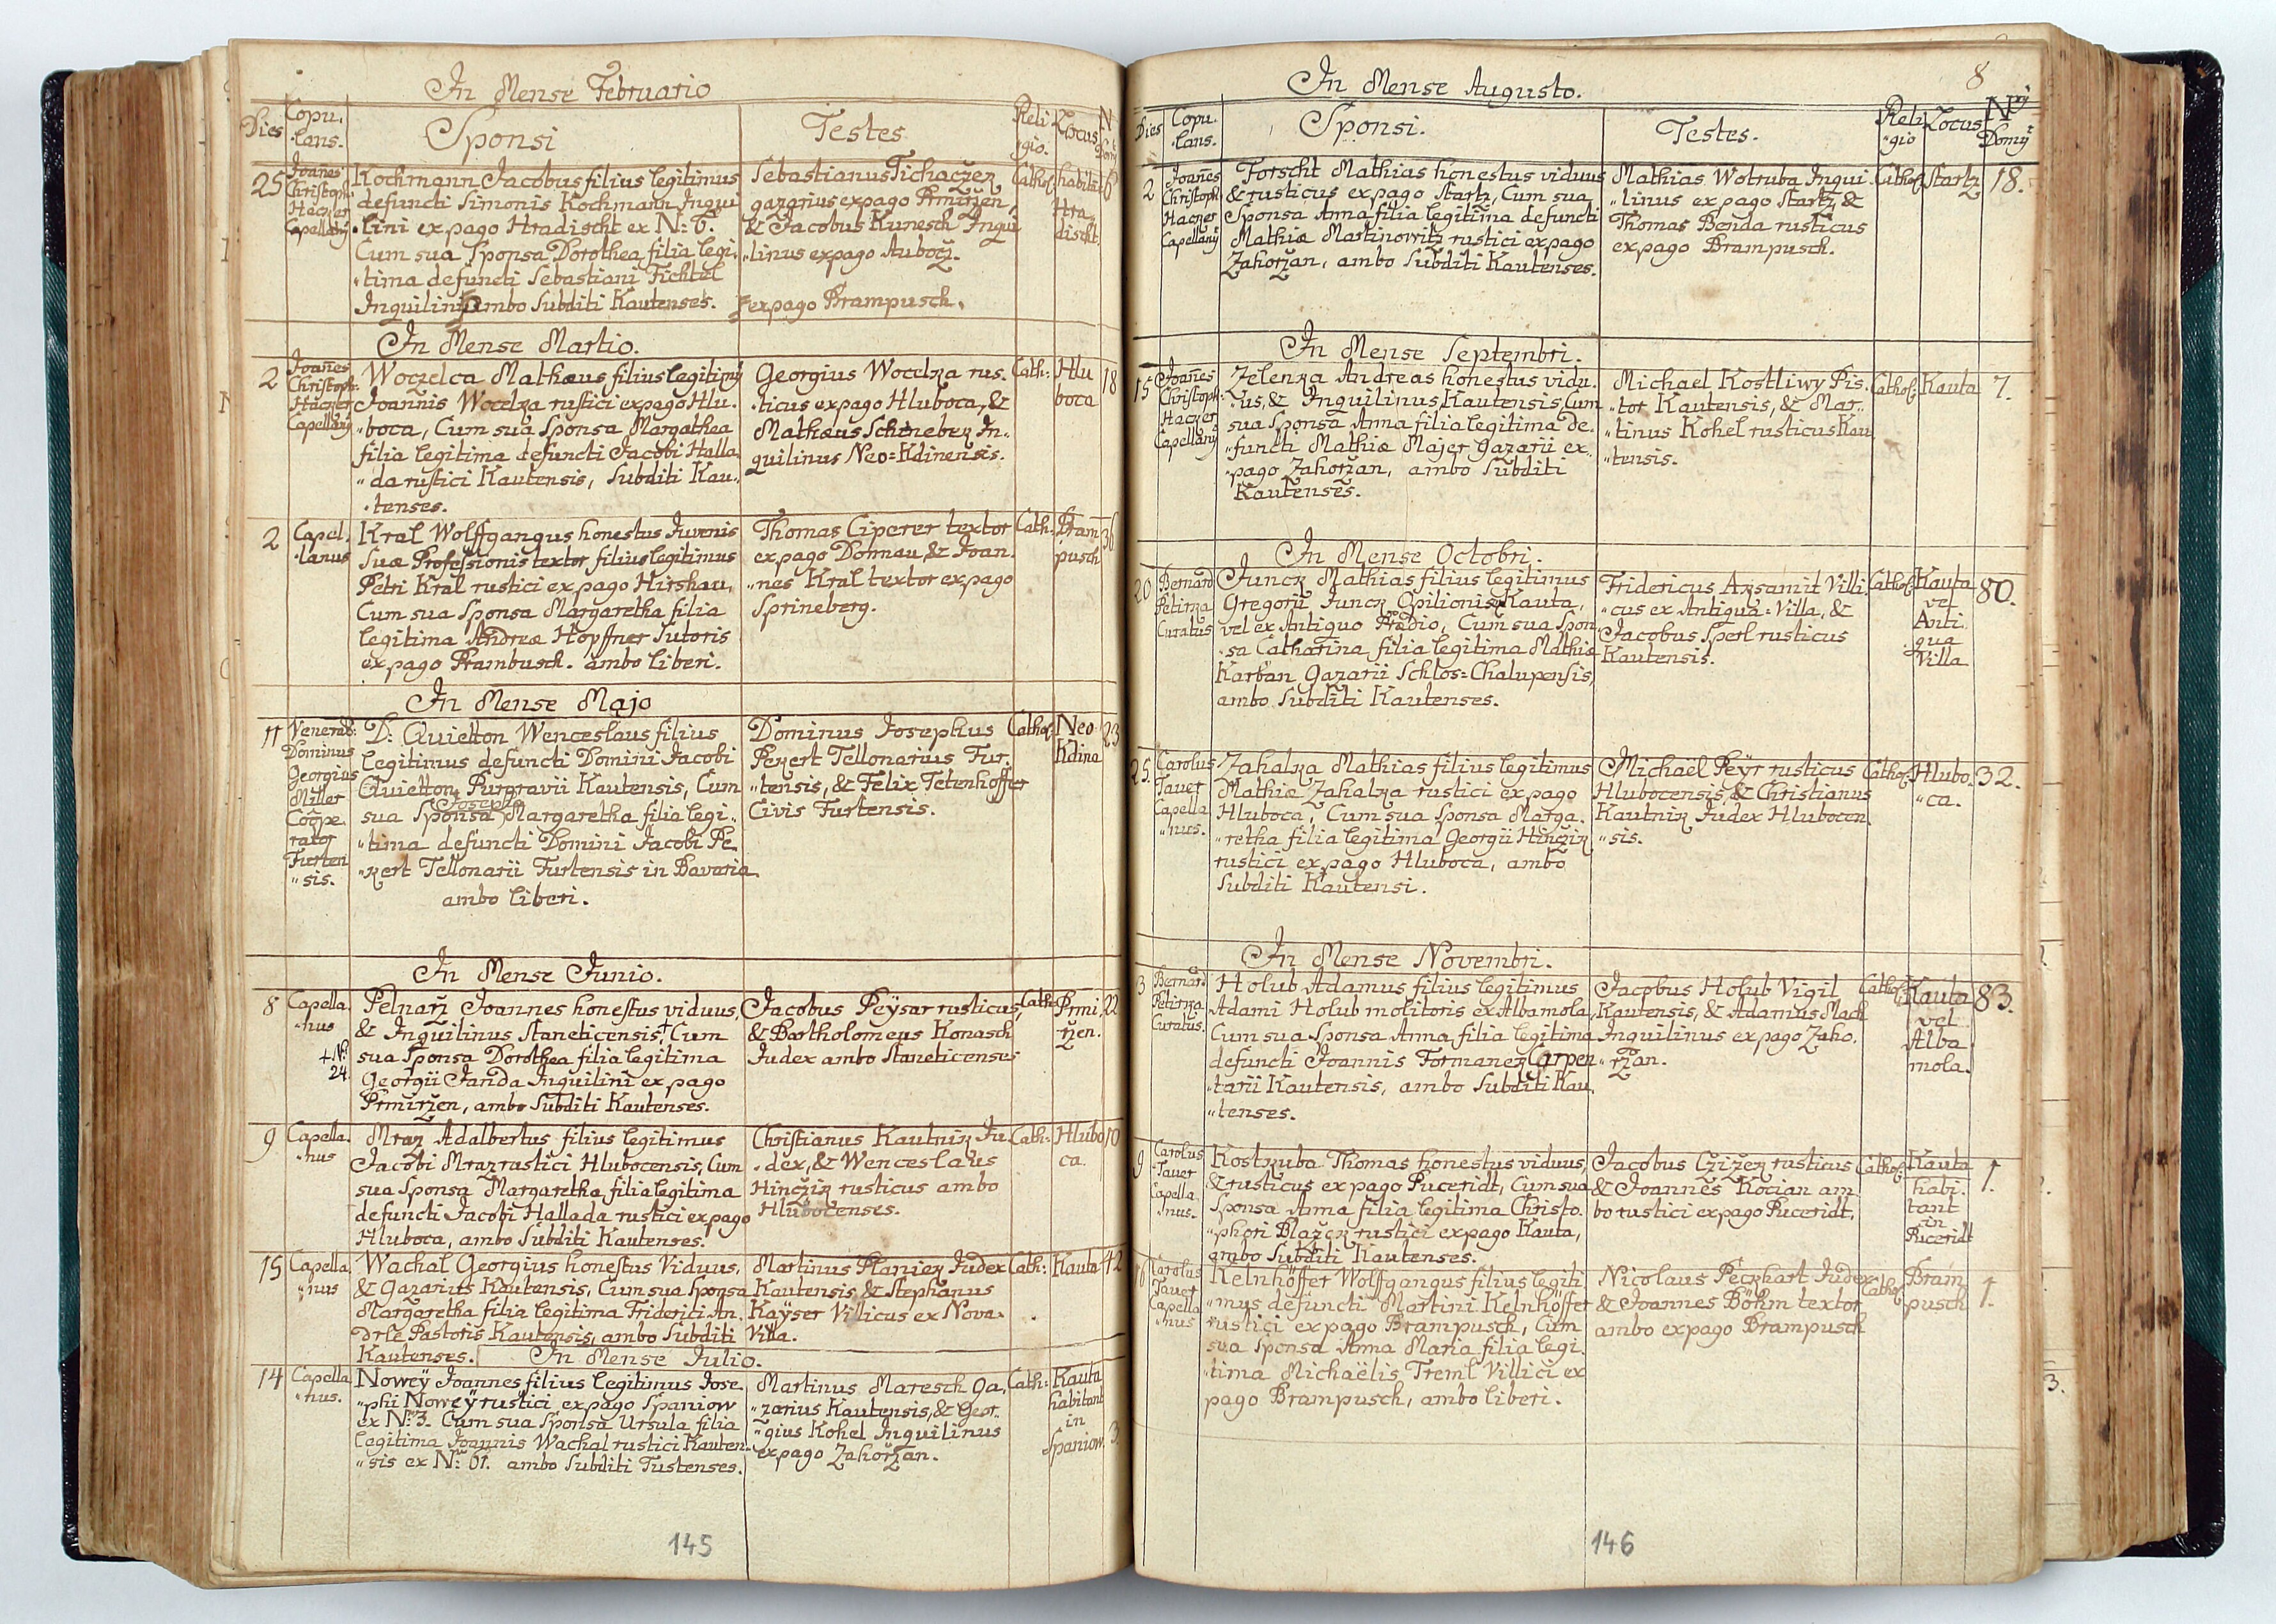 In Mense Februario
Dies
Copu.
.lans.
Sponsi
Testes
Reli
gio.
Locus
N
Domy
25
Joanes
Christoph
Hacker
Capellany
Kochmann Jacobus filius legitimus
defuncti Simonis Kochmann Inqui
.lini ex pago Hradischt ex N: 6.
Cum sua Sponsa Dorothea filia legi.
.tima defuncti Sebastiani Fichtel
Inquilini ambo Subditi Kautenses.
Sebastianus Tichaczek
gazarius ex pago Prmirzen,
& Jacobus Kunesch Inqui
"linus ex pago Aubocz.
ex pago Prampusch.
Cathol:
habitat
Hra
discht.
6
In Mense Martio.
2
Joanes
Christoph:
Hacker
Capellany
Woczelca Mathæus filius legitimy
Joannis Wocelka rustici ex pago Hlu.
"boca, Cum sua Sponsa Margathea
filia legitima defuncti Jacobi Halla
"da rustici Kautensis, Subditi Kau.
.tenses.
Georgius Wocelka rus.
.ticus ex pago Hluboca, &
Mathæus Schinebek In.
quilinus Neo=Kdinensis.
Cath:
Hlu
boca
18
2
Capel.
.lanus
Kral Wolffgangus honestus Juvenis
Suæ Professionis textor filius legitimus
Petri Kral rustici ex pago Hirshau,
Cum sua Sponsa Margaretha filia
legitima Andreæ Höpffner Sutoris
ex pago Prambusch. ambo liberi.
Thomas Ciperer textor
ex pago Donnau & Joan.
"nes Kral textor ex pago
Sprineberg.
Cath:
Pram
pusch
36
In Mense Majo
11
Venerab:
Dominus
Georgius
Miller
Coope.
rator
Furten
"sis.
D: Quietton Wenceslaus filius
legitimus defuncti Domini Jacobi
Quietton Purgravii Kautensis, Cum
Josepha
sua Sponsa Margaretha filia legi..
"tima defuncti Domini Jacobi Pe.
"kert Tellonarii Furtensis in Bavaria
ambo liberi.
Dominus Josephus
Pekert Tellonarius Fur.
"tensis, & Felix Tetenhöffer
Civis Furtensis.
Cathol:
Neo
Kdina
23
In Mense Junio.
8
Capella.
"nus
+ N:
24
Pelnarz Joannes honestus viduus,
& Inquilinus Staneticensis + Cum
sua Sponsa Dorothea filia legitima
Georgii Janda Inquilini ex pago
Prmirzen, ambo Subditi Kautenses.
Jacobus Peÿsar rusticus,
& Bartholomeus Konasch
Judex ambo Staneticenses
Cath:
Prmi
rzen.
22
9
Capella.
"nus
Mraz Adalbertus filius legitimus
Jacobi Mraz rustici Hlubocensis, Cum
sua Sponsa Margaretha filia legitima
defuncti Jacobi Hallada rustici ex pago
Hluboca, ambo Subditi Kautenses.
Christianus Kautnik Ju.
.dex, & Wenceslaus
Hinczik rusticus ambo
Hlubocenses.
Cath:
Hlubo
ca.
10
15
Capella
"nus
Wachal Georgius honestus Viduus,
& Gazarius Kautensis, Cum sua Sponsa
Margaretha filia legitima Friderici An.
drle Pastoris Kautensis, ambo Subditi
Kautenses.
Martinus Planiek Judex
Kautensis & Stephanus
Kaÿser Villicus ex Nova.
Villa.
Cath:
Kauta
42
In Mense Julio.
14
Capella
"nus.
Noweÿ Joannes filius legitimus Jose.
"phi Noweÿ rustici ex pago Spaniow
ex N: 3. Cum sua Sponsa Ursula filia
legitima Joannis Wachal rustici Kauten.
"sis ex N: 61. ambo Subditi Tustenses.
Martinus Maresch ga.
"zarius Kautensis, & Geor..
"gius Kohel Inquilinus
ex pago Zahorzan.
Cath:
Kauta
habitant
in
Spaniow.
3
145
In Mense Augusto.
8
Dies
Copu.
.lans.
Sponsi.
Testes.
Reli
"gio
Locus
Nry
Domy
2
Joanes
Christoph
Hacker
Capellany
Forscht Mathias honestus viduus
& rusticus ex pago Startz, Cum sua
Sponsa Anna filia legitima defuncti
Mathiæ Martinowitz rustici ex pago
Zahorzan, ambo Subditi Kautenses.
Mathias Wotruba Inqui.
"linus ex pago Startz &
Thomas Benda rusticus
ex pago Brampusch.
Cathol:
Startz
18.
In Mense Septembri.
15
Joanes
Christoph:
Hacker
Capellany
Zelenka Andreas honestus vidu.
.us, & Inquilinus Kautensis Cum
sua Sponsa Anna filia legitima de.
"functi Mathiæ Majer Gazarii ex..
.pago Zahorzan, ambo Subditi
Kautenses.
Michael Kostliwy Pis.
"tor Kautensis, & Mar..
"tinus Kohel rusticus Kau
"tensis.
Cathol:
Kauta
7.
In Mense Octobri.
20
Bernard
Petirka
Curatus
Junck Mathias filius legitimus
Gregorii Junck Opilionis Kauta,
vel ex Antiquo Prædio, Cum sua Spon.
.sa Catharina filia legitima Mathiæ
Karban Gazarii Schlos=Chalupensis,
ambo Subditi Kautenses.
Fridericus Aksamit Villi.
"cus ex Antiqua=Villa, &
Jacobus Sperl rusticus
Kautensis.
Cathol:
Kauta
vel
Anti.
qua
Villa
80.
25.
Carolus
Tauer
Capella
"nus.
Zahalka Mathias filius legitimus
Mathiæ Zahalka rustici ex pago
Hluboca, Cum sua Sponsa Marga.
"retha filia legitima Georgii Hinczik
rustici ex pago Hluboca, ambo
Subditi Kautensi.
Michaël Peÿr rusticus
Hlubocensis, & Christianus
Kautnik Judex Hlubocen.
"sis.
Cathol:
Hlubo.
"ca.
32.
In Mense Novembri.
3
Bernard.
Petirka
Curatus.
Holub Adamus filius legitimus
Adami Holub molitoris ex Albamola,
Cum sua Sponsa Anna filia legitima
defuncti Joannis Formanek Carpen
"tarii Kautensis, ambo Subditi Kau.
"tenses.
Jacobus Holub Vigil
Kautensis, & Adamus Mach
Inquilinus ex pago Zaho.
"rzan.
Cathol:
Kauta
vel
Alba
mola.
83.
9
Carolus
Tauer
Capella.
.nus.
Kostkuba Thomas honestus viduus,
& rusticus ex pago Puceridt, Cum sua
Sponsa Anna filia legitima Christo.
"phori Blazek rustici ex pago Kauta,
ambo Subditi Kautenses.
Jacobus Czizek rusticus
& Joannes Kocian am
bo rustici ex pago Puceridt.
Cathol:
Kauta
habi.
tant
in
Puceridt
1.
16
Carolus
Tauer
Capella
"nus
Kelnhöffer Wolffgangus filius legiti
"mus defuncti Martini Kelnhöffer
rustici ex pago Brampusch, Cum
sua Sponsa Anna Maria filia legi.
"tima Michaëlis Treml Villici ex
pago Brampusch, ambo liberi.
Nicolaus Peckhart Judex
& Joannes Böhm textor
ambo ex pago Brampusch
Cathol:
Bram
pusch
1.
3.
146